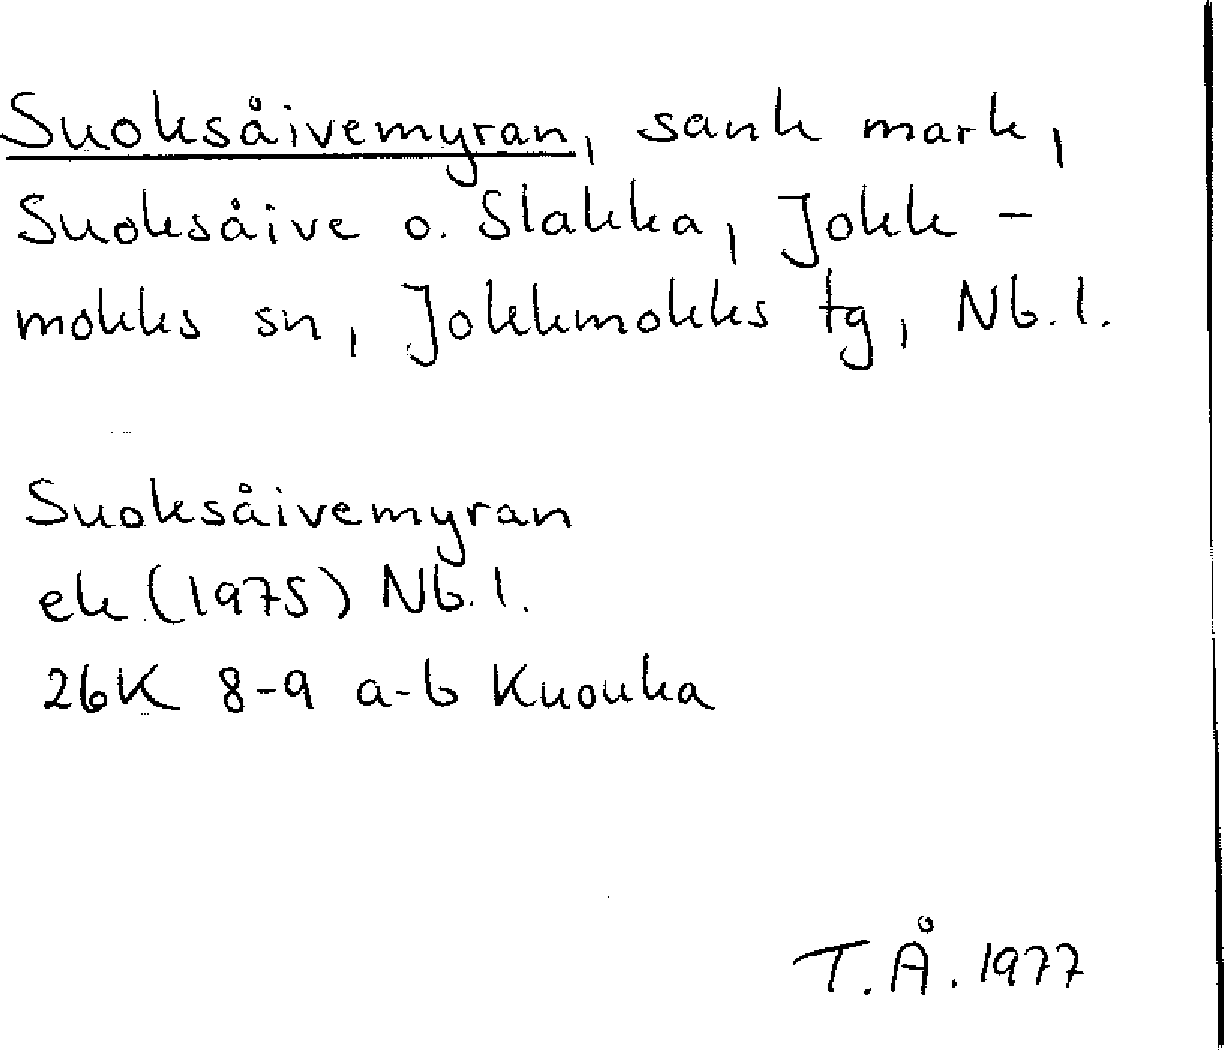 Suoksåivemyran, sank mark,
Suoksåive o. Slakka, Jokk-
mokks sn, Jokkmokks tg, Nb. l.
Suoksåivemyran
ek (1975) Nb. l.
26K 8-9 a-b Kuouka
T. Å. 1977